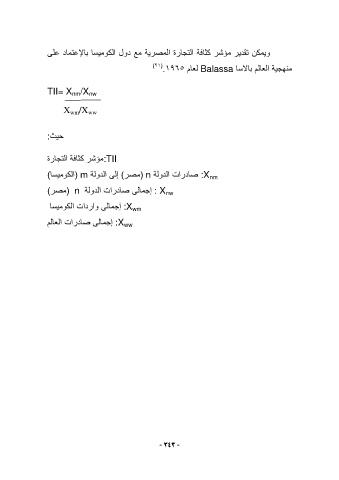 ويمكن تقدير مؤشر كثافة التجارة المصرية مع دول الكوميسا بالإعتماد على
منهجية العالم بالاسا Balassa لعام ١٩٦٥.(٢١)
TII= Xnm/Xnw
Xwm/Xww
حيث:
TII:مؤشر كثافة التجارة
Xnm: صادرات الدولة n (مصر) إلى الدولة m (الكوميسا)
Xnw : إجمالى صادرات الدولة n (مصر)
Xwm: إجمالى واردات الكوميسا
Xww: إجمالى صادرات العالم
- ٢٤٣ -